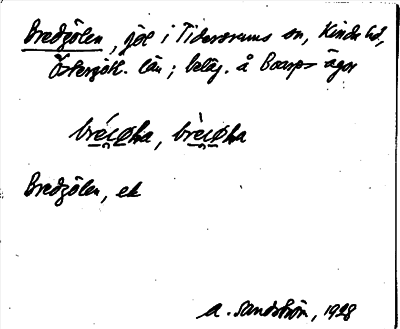 Bredgölen, göl i Tidersrums sn, Kinda hd,
Östergötl. län; beläg. å Boarps ägor
Bredgölen, ek
A. Sandström, 1928